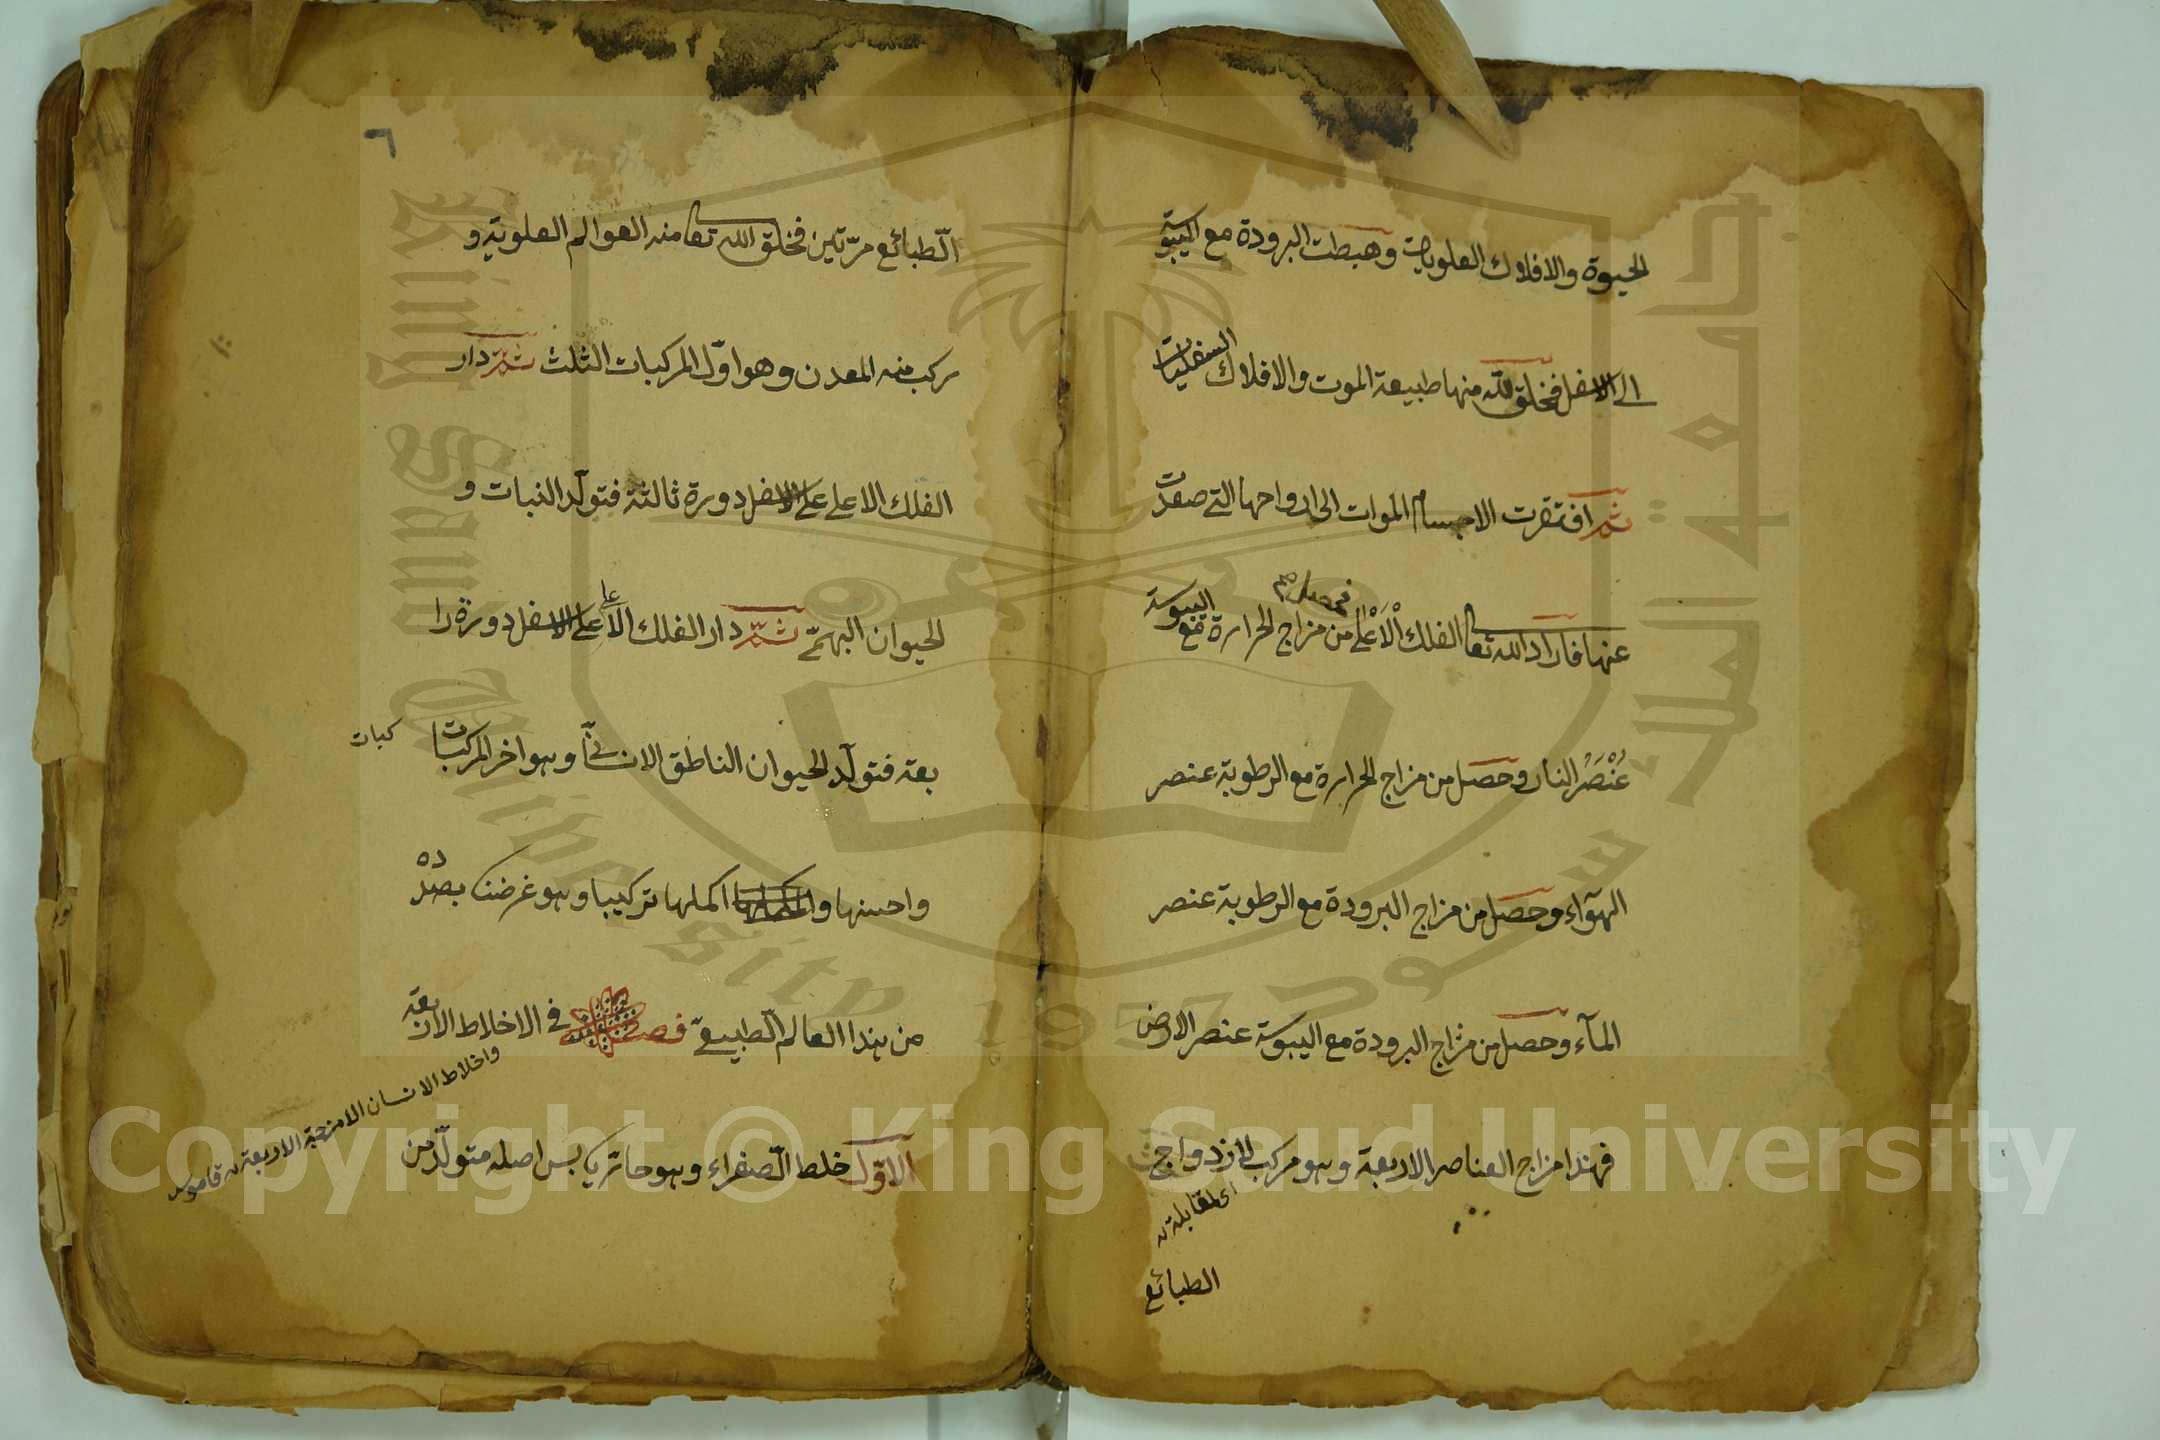 الحيوة والافلاك العلويات وهبطت البرودة مع اليبوسة
الى الاسفل فخلق الله منها طبيعة الموت والافلاك السفليات
ثم افتقرت الاجسام الموات الى ارواحها التي صعدت
عنها فاراد الله تعا الفلك الْاَعْلى من مزاج الحرارة مع اليبوسة
فحصل
عُنْصَرُ النار وحصل من مزاج الحرارة مع الرطوبة عنصر
الهوآء وحصل من مزاج البرودة مع الرطوبة عنصر
المآء وحصل من مزاج البرودة مع اليبوسة عنصر الارض
فهذا مزاج العناصر الاربعة وهو مركب لازدواج
اى لمقابلة
الطبائع
٦
الطّبائع مرّتين فخلق الله تعا منه العوالم العلوية و
ركب منه المعدن وهو اوّل المركبات الثلث ثمّ دار
الفلك الاعلى على الاسفل دورة ثالثة فتولّد النبات و
الحيوان البهمىّ ثمّ دار الفلك الاعلى على الاسفل دورة را
بعة فتولّد الحيوان الناطق الانسانىّ وهو اخر المركبات
كبات
واحسنها و اكملها تركيبا وهو غرضنا بصدده
من هذا العالم الطبيعىّ فصل في الاخلاط الاربعة
واخلاط الانسان الامزجة الاربعة قاموس
الاوّل خلط الصّفراء وهو حار يابس اصله متولّد من
جامعة الملك سعود
King Saud University
1957
Copyright © King Saud University